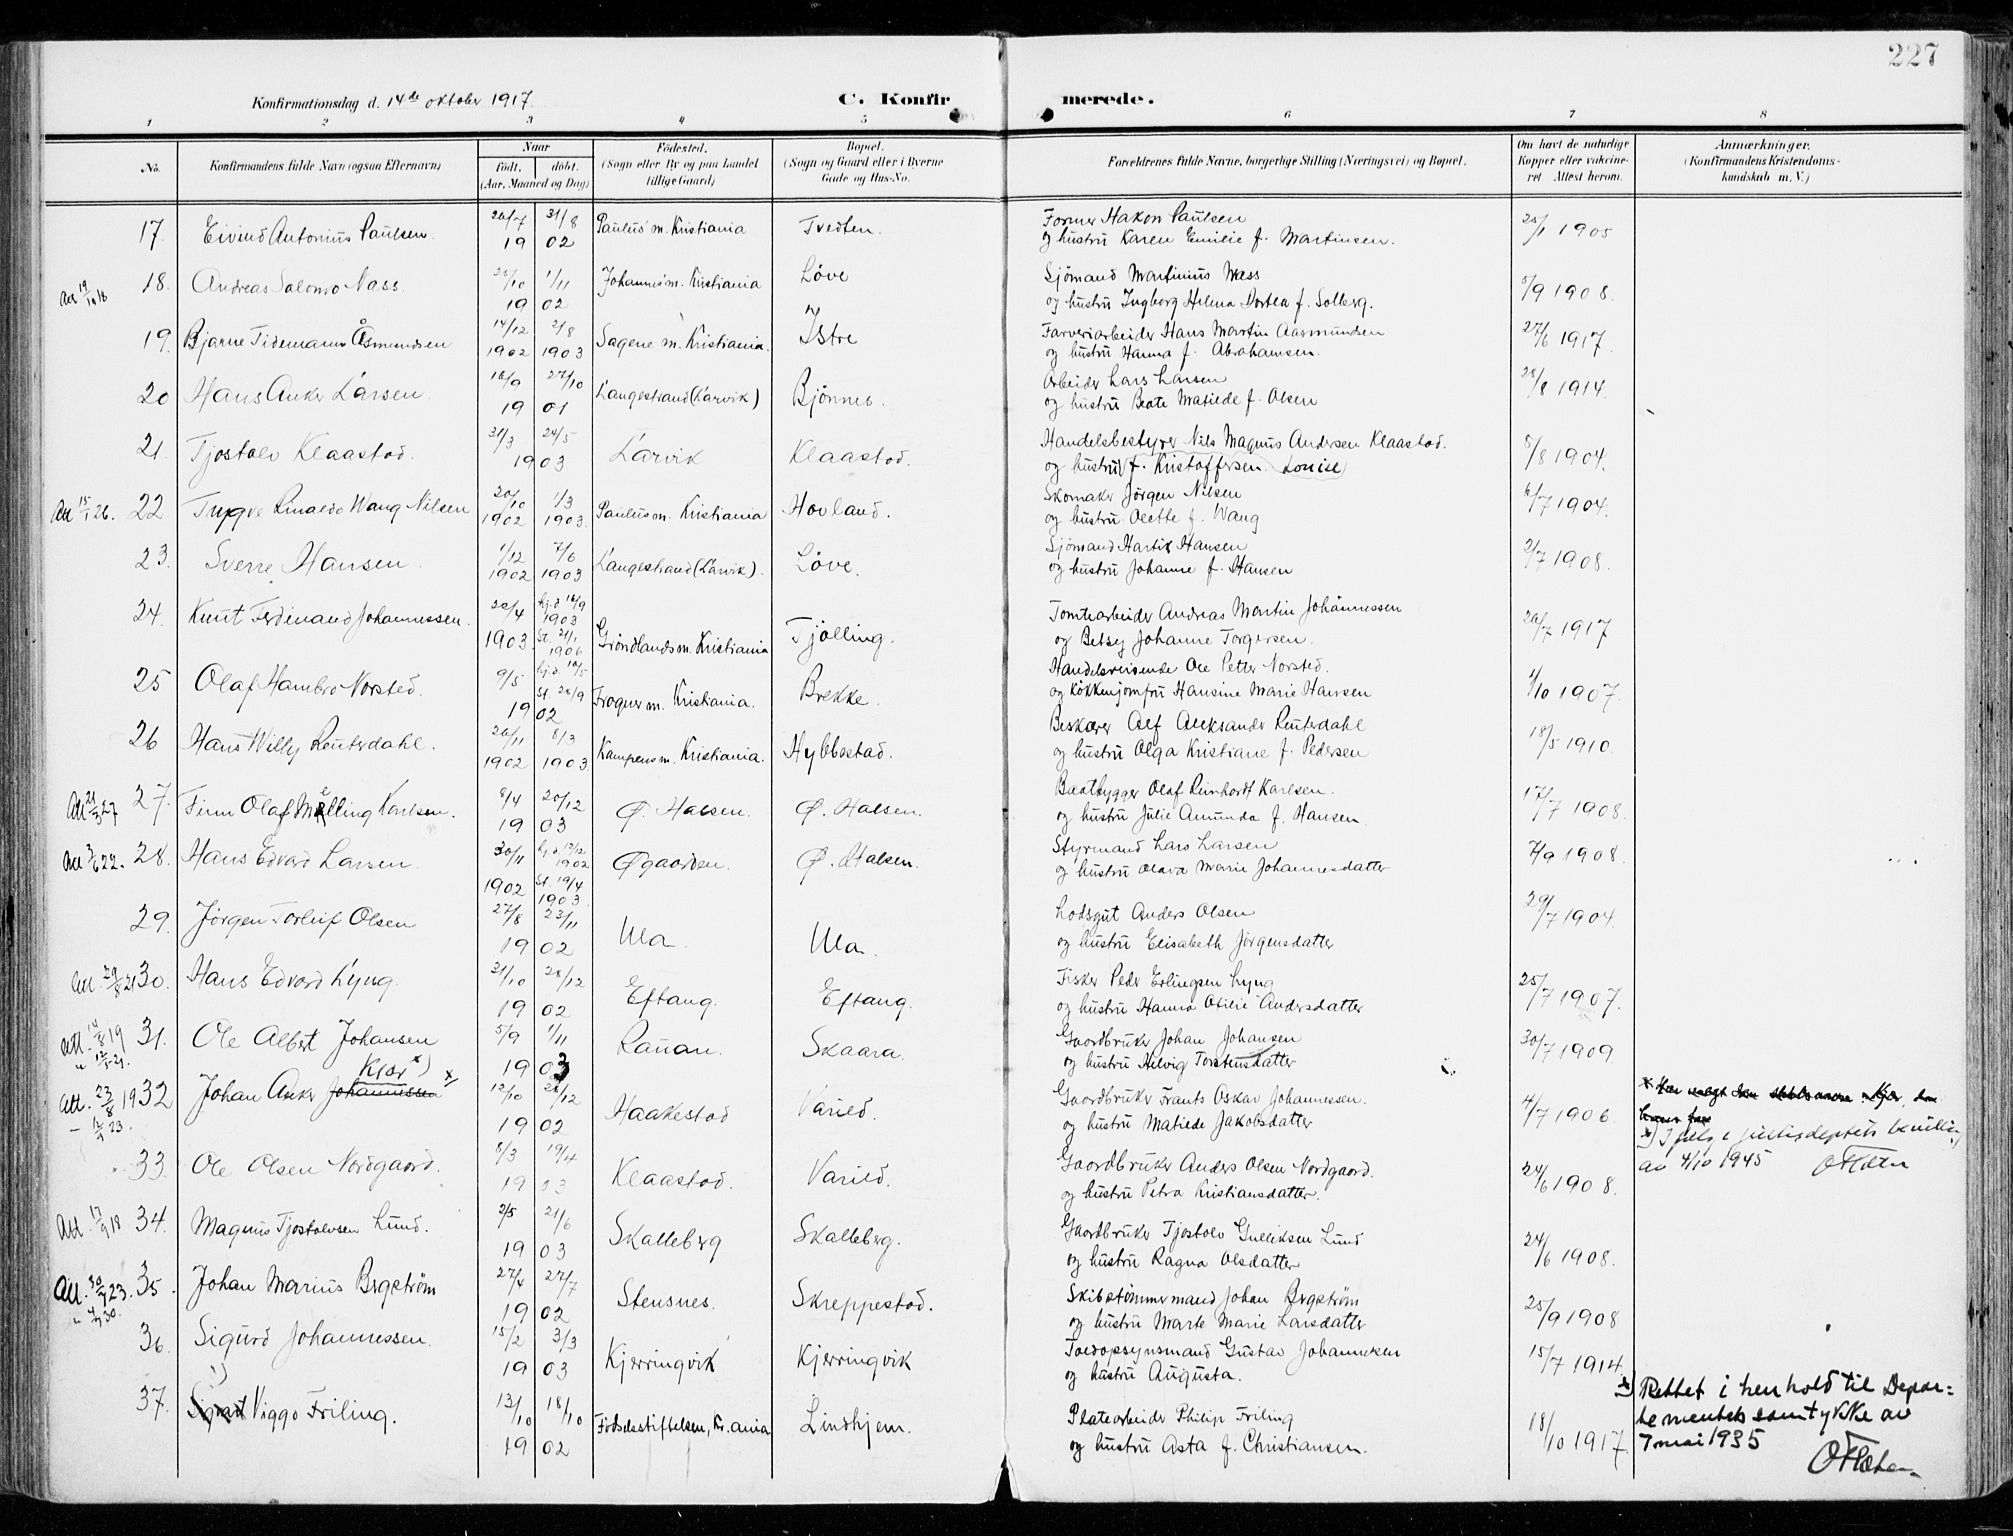 227
Konfirmationsdag d. 14de oktober 1917. C. Konfirmerede.
1 2 3 4 5 6 7 8
No. Konfirmandens fulde Navn (ogsaa Efternavn) Naar født, døbt. (Aar, Maaned og Dag) Fødested. (Sogn eller By og paa Landet tillige Gaard) Bopæl. (Sogn og Gaard eller i Byerne Gade og Hus-No. Forældrenes fulde Navne, borgerlige Stilling (Næringsvei) og Bopæl. Om havt de naturlige Kopper eller vakcineret Attest herom. Anmærkninger. (Konfirmandens Kristendomskundskab m. V.)
17. Eivind Antonius Paulsen. 20/7 31/8 Paulus m. Kristiania Tvedten. Former Hakon Paulsen 25/1 1905
19 02 og hustru Karen Emilie f. Martinsen.
18. Andreas Salomo Næss. 25/10 1/11 Johannes m. Kristiania Löve Sjömand Martinius Næss 5/9 1908.
19 02 og hustru Ingborg Helena Dortea f. Solberg.
19. Bjarne Tidemann Åsmundsen 14/12 2/8 Sagene m. Kristiania. Istre Farveriarbeider Hans Martin Aasmundsen 27/6 1917.
1902 1903 og hustru Hanna f. Abrahamsen.
20 Hans Anker Larsen. 16/9 27/10 Langestrand (Larvik) Björnes. Arbeider Lars Larsen 28/8 1914.
19 01 og hustru Beate Matilde f. Olsen
21. Tjostolv Klaastad. 31/3 24/5 Larvik Klaastad. Handelsbestyrer Nils Magnus Andersen Klaastad. 8/8 1904.
19 03 og hustru f. Kristoffersen Louise
Att 15/1 26. 22 Trygve Rinaldo Wang Nilsen 20/10 1/3 Paulus m. Kristiania Hovland. Skomaker Jörgen Nilsen 6/7 1904.
1902 1903. og hustru Olette f. Wang
23. Sverre Hansen. 1/12 7/6 Langestrand (Larvik). Löve. Sjömand Hartik Hansen 2/7 1908.
1902 1903 og hustru Johanne f. Hansen
24. Knut Ferdinand Johannessen. 22/4 hj.d 16/9 1903 Tomtearbeider Andreas Martin Johannessen 26/7 1917
1903. St. 21/1 1906 Gröndlands m. Kristiania Tjölling. og Betsy Johanne Torgersen.
25 Olaf Hambro Norsted. 9/5 hj.d. 18/5 Handelsreisende Ole Petter Norsted.
St. 28/9 Frogner m. Kristiania. Brekke. og kökkenjomfru Hansine Marie Hansen 1/10 1907.
19 02
26 Hans Willy Reuterdahl. 26/11 8/3 Kampens m. Kristiania. Hybbestad. Beskærer Alf Aleksander Reuterdahl 18/5 1910.
1902 1903 og hustru Olga Kristiane f. Pedersen
Att 21/3 27 27. Finn Olaf Melling Karlsen. 8/4 20/12 Ø. Halsen. Ø. Halsen. Baatbygger Olaf Reinhardt Karlsen. 17/7 1908.
19 03 og hustru Julie Amunda f. Hansen
28. Hans Edvard Larsen. 30/11 hj.d 12/12 1902 Øgaarden. Ø. Halsen. Styrmand Lars Larsen 7/9 1908.
1902 St. 19/4 1903. og hustru Olava Marie Johannesdatter
29. Jörgen Torleif Olsen 27/8 23/11 Ula. Ula. Lodsgut Anders Olsen 29/7 1904
19 02 og hustru Elisabeth Jörgensdatter
Att. 29/8 21 30. Hans Edvard Lyng. 21/10 28/12 Eftang. Eftang. Fisker Peder Erlingsen Lyng 25/7 1907.
19 02 og hustru Hanna Otilie Andersdatter
Att. 14/8 19 31. Ole Albert Johansen 5/9 1/11 Rauan. Skaara. Gaardbruker Johan Johansen 30/7 1909.
19 03 og hustru Helvig Torstensdatter
Kjær x)
Att. 23/8 19 32 Johan Anker Johannessen x 12/10 26/12 Haakestad Varild. Gaardbruker Frants Oskar Johannessen. 4/7 1906
19 02 og hustru Matilde Jakobsdatter
x) I følge justisdeptets bevilling
av 4/10 1945
33. Ole Olsen Nordgaard. 8/3 19/4 Klaastad. Varild. Gaardbruker Anders Olsen Nordgaard. 24/6 1908.
19 03 og hustru Petra Kristiansdatter.
Att. 17/9 18 34. Magnus Tjostolvsen Lund. 2/5 21/6 Skalleberg Skalleberg. Gaardbruker Tjostolv Gulliksen Lund 24/6 1908.
19 03 og hustru Ragna Olsdatter
35. Johan Marius Bergström 27/4 27/7 Stensnes. Skreppestad. Skibstømmermand Johan Bergström 25/9 1908
19 02 og hustru Marte Marie Larsdatter
36. Sigurd Johannessen. 15/2 3/3 Kjerringvik Kjerringvik Toldopsynsmand Gustav Johannesen 15/7 1914.
19 03 og hustru Augusta.
37. Viggo Friling. 13/10 18/10 Födselsstiftelsen, Kr.ania Lindhjem. Platearbeider Philip Friling 18/10 1917.
19 02 og hustru Asta f. Christiansen.
x) Rettet i henhold til Depar=
tementets samtykke av
7 mai 1935